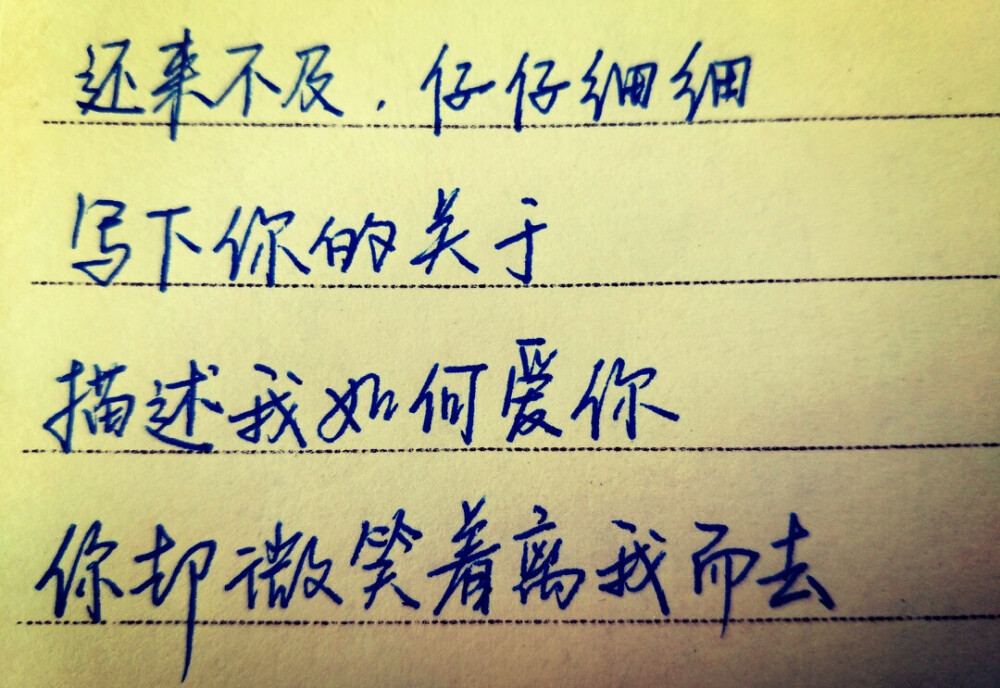 还来不及,仔仔细细
写下你的关于
描述我如何爱你
你却微笑着离我而去